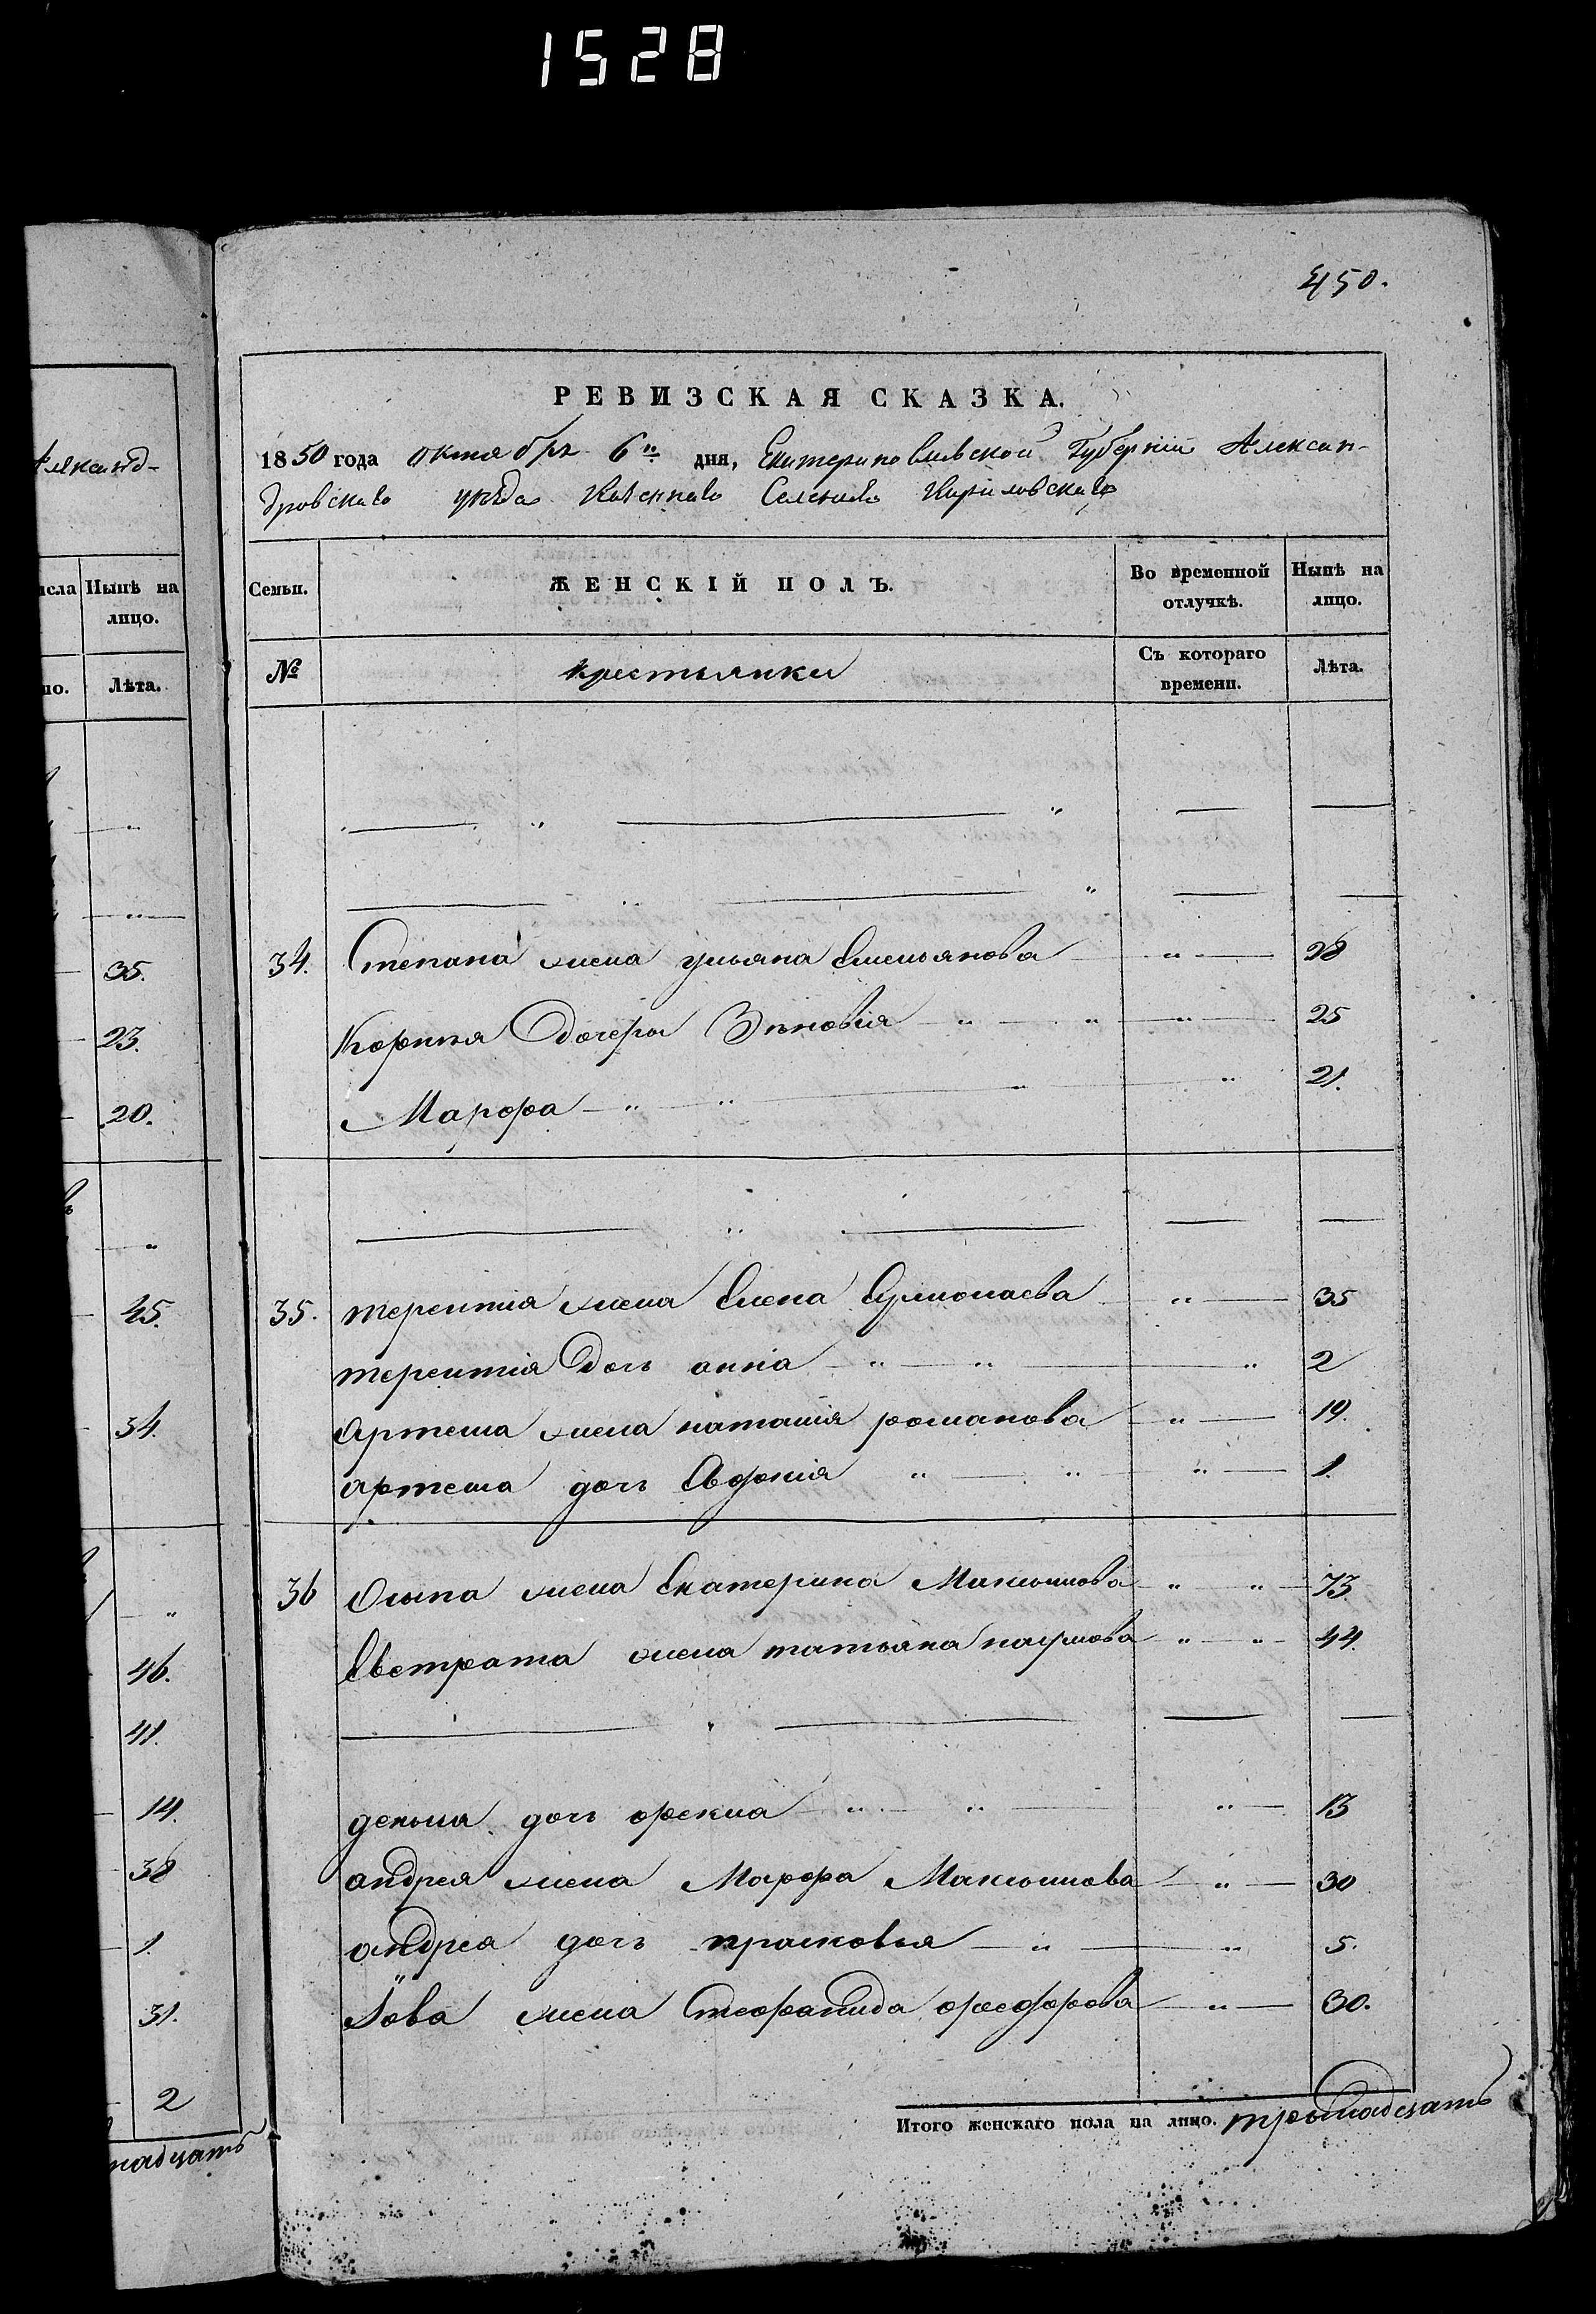 1528
450.
Александ-
РЕВИЗСКАЯ СКАЗКА.
1850 года октября 6го дня, Екатеринославской Губерніи Алексан-
дровскаго уезда Казеннаго Селенія Кириловскаго
Нынѣ на лицо.
Лѣта.
35.
23.
20.
45.
34.
46.
41.
14.
38
1.
31.
2
надцать
Семьи. ЖЕНСКІЙ ПОЛЪ. Во временной отлучкѣ. Нынѣ на лицо.
№ крестьянки Съ котораго времени. Лѣта.
34. Степана жена ульяна Емельянова 28
Корнѣя Дочери Зѣновія 25
Марфа 21.
35. терентія жена Елена Ермолаева 35
терентія Доч анна 2
артема жена наталія романова 19.
артема доч Авдокія 1.
36 Осипа жена Екатерина Максимова 73.
Евстрата жена татьяна наумова 44.
демьяна доч фекла 13
андрея жена Марфа Максимова 30
андрея доч прасковья 5.
Іова жена Стефанида федорова 30.
Итого женскаго пола на лицо. тринадцать